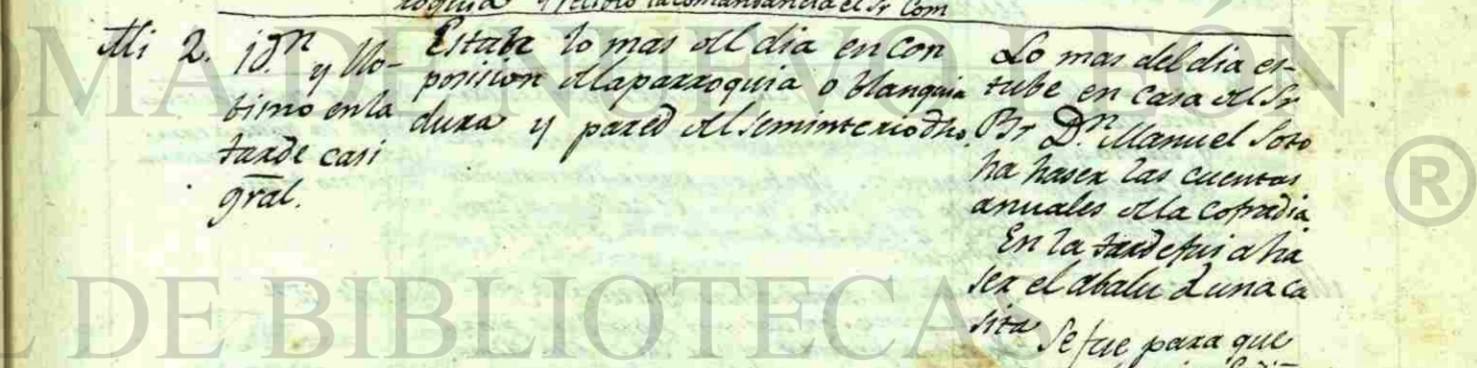 roquia y recibio la comandancia el Sr Com
Mi 2. id.n y llo-
bimo en la
tarde casi
gral.
Estube lo mas del dia en con
posision de la parroquia o blanquia
dura y pared del seminterio dho.
Lo mas del dia es-
tube en casa del Sr
Br D.n Manuel Soto
ha haser las cuentas
anuales de la cofradia
En la tarde fui a ha
ser el abalu d una ca
sita
Se fue para que
OMA DE NUEVO LEÓN
L DE BIBLIOTECAS
®